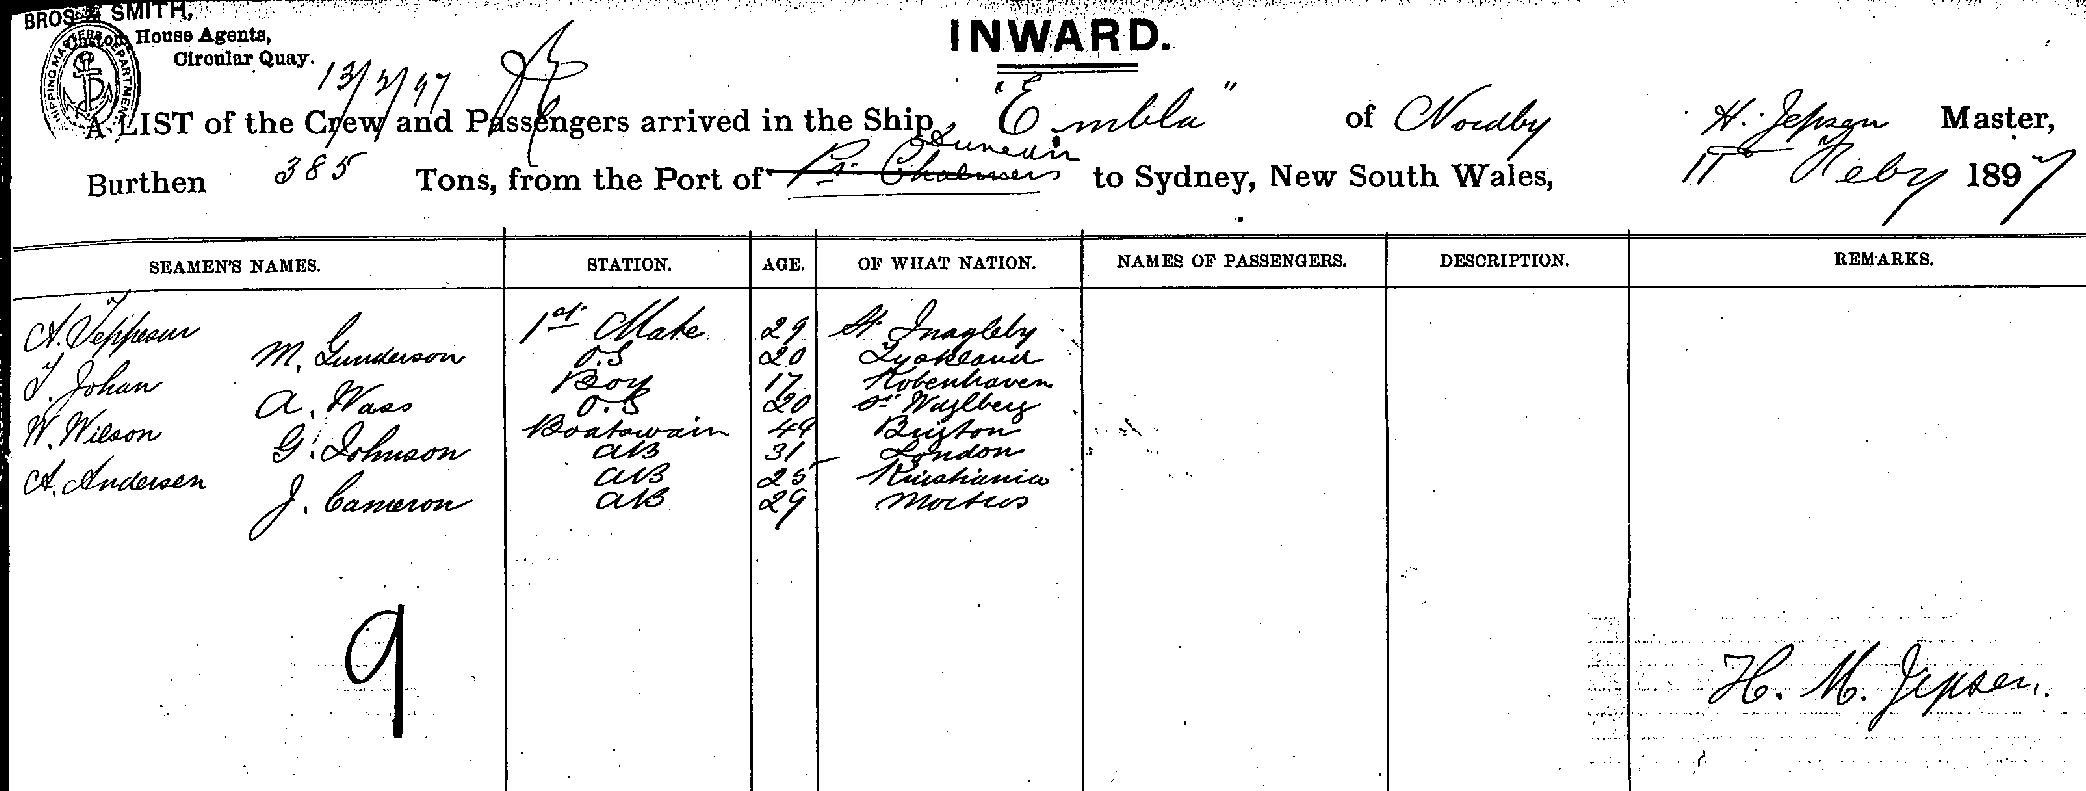 BROS & SMITH,
Custom House Agents,
Circular Quay.
INWARD.
13/2/97
A LIST of the Crew and Passengers arrived in the Ship "Embla" of Nordby H. Jepsen Master,
Dunedin
Burthen 385 Tons, from the Port of Pt. Chalmers to Sydney, New South Wales, 11th Feby 1897
SEAMEN'S NAMES. STATION. AGE. OF WHAT NATION. NAMES OF PASSENGERS. DESCRIPTION. REMARKS.
A. Jeppesen 1st Mate 29 St.
M. Gunderson O.S 20 Tyskland
T. Johan Boy 17 Kobenhaven
A. Wass O.S 20
W. Wilson Boatswain 49
G. Johnson AB 31 London
A. Andersen AB 25 Kristiania
J. Cameron AB 29
9
H. M. Jepsen.